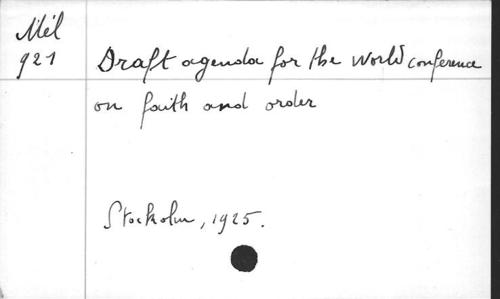 Mél
921
Draft agenda for the World conference
on faith and order
Stockholm, 1925.